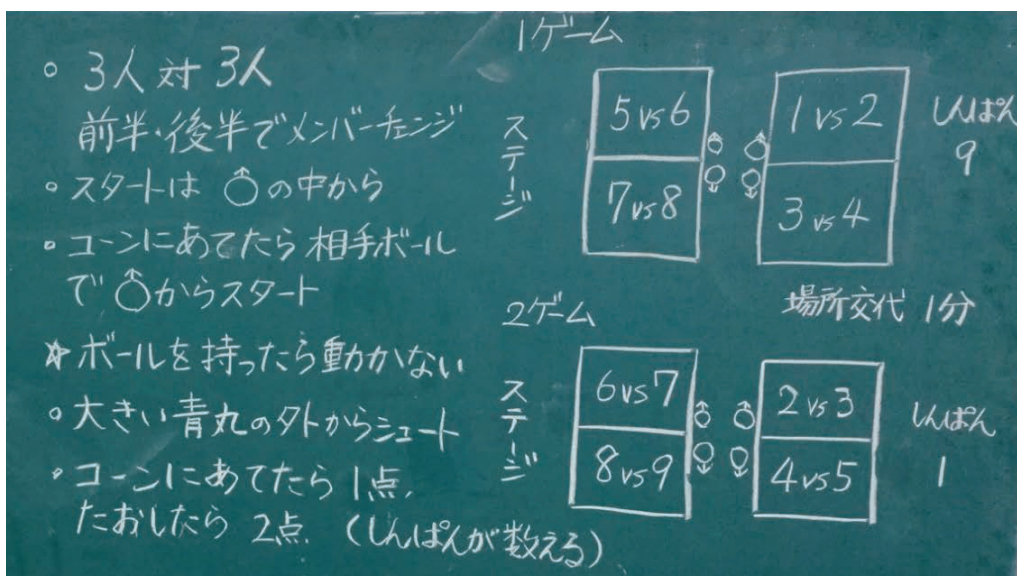 ○ 3人対3人
前半・後半でメンバーチェンジ
○ スタートは の中から
○ コーンにあてたら相手ボール
で からスタート
☆ ボールを持ったら動かない
○ 大きい青丸の外からシュート
○ コーンにあてたら1点.
たおしたら 2点. (しんぱんが数える)
1ゲーム
ステージ
5vs6
7vs8
1vs2
3vs4
しんぱん
9
場所交代 1分
2ゲーム
ステージ
6vs7
8vs9
2vs3
4vs5
しんぱん
1